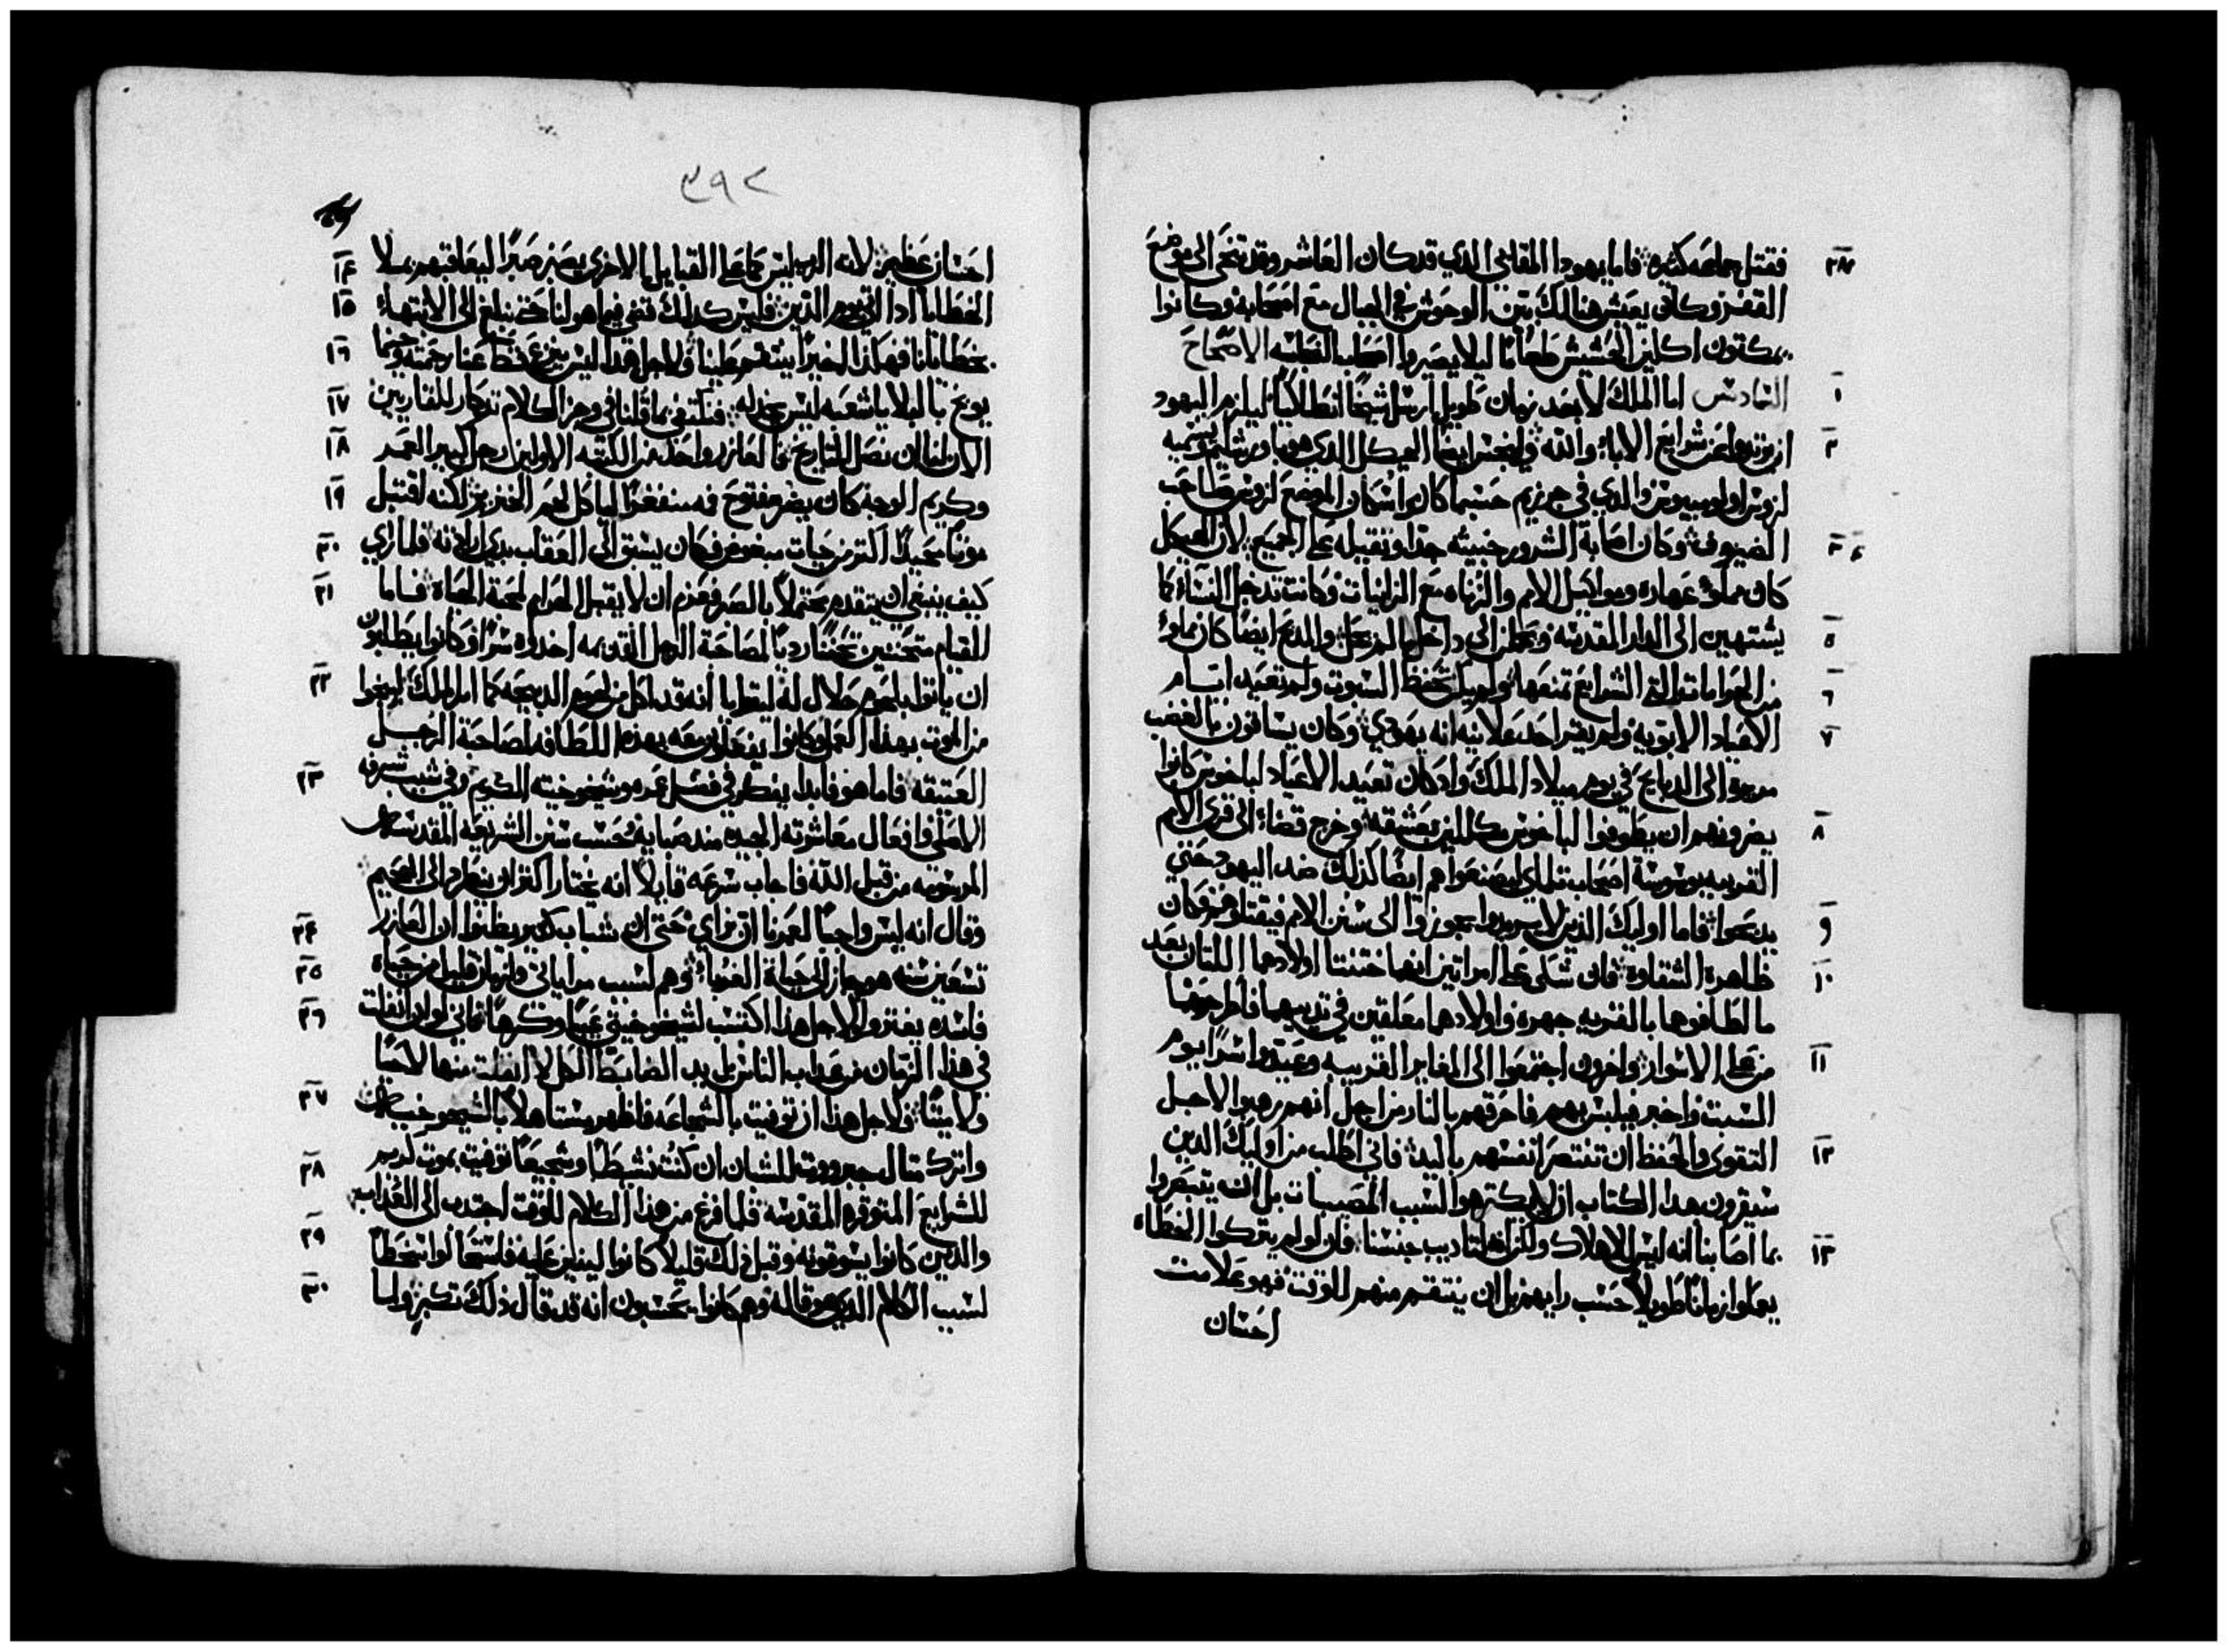 ٢٧ فقتل جماعه كثيره فاما يهودا المقابي الدي قد كان العاشر وقد تنحى الى موضع
القفر وكان يعيش هنالك بين الوحوش في الجبال مع اصحابه وكانوا
يمكتون اكلين الحشيش طعامًا ليلا يصيروا الاصحاح
١ السادس اما الملك لا بعد زمان طويل ارسل شيخًا انطاكيًا ليلزم اليهود
٢ ان عن شرايع الاباء والله ولينجس ايضًا الهيكل الدي هو باورشليم ويسميه
زوس اولومبيوس والدي في جرزيم حسبما كانوا سكان الموضع زوس صاحب
٣ ٤ الضيوف وكان اصابة الشرور خبيثه جدًا وثقيله على الجميع لان الهيكل
كان مملوء عهاره ومواكيل الامم والزناه مع الزانيات وكانت تدخل النساء كما
٥ يشتهين الى الدار المقدسه الى داخل ما لم يحل والمدبح ايضًا كان مملوء
٦ من الحرامات التي الشرايع تمنعها ولم يكن تحفظ السبوت ولم تعيد ايام
٧ الاعياد الابويه ولم يقر احد علانيه انه يهودي وكان يساقون بالغضب
الى الدبايح في يوم ميلاد الملك واد كان تعيد الاعياد لباخوس كانوا
٨ ان يطوفوا لباخوس مكللين وخرج قضاء الى قرى الامم
القريبه بوسوسة اصحاب تلماي ليصنعوا هم ايضًا كذلك ضد اليهود حتى
٩ يدبحوا فاما اوليك الدين لا يريدوا يجوزوا الى سنن الامم فيقتلوهم فكان
١٠ ظاهرة الشقاوة فان شكى على امراتين انهما ختنتا اولادهما اللتان بعد
ما اطافوهما بالقريه جهره واولادهما معلقين في ثدييهما فاطرحوهما
١١ من على الاسوار واخرون اجتمعوا الى المغاير القريبه وعيدوا سرًا يوم
السبت واخبر فيلبس بهم فاحرقهم بالنار من اجل انهم رهبوا لاجل
١٢ التقوى والحفظ ان تنتصر انفسهم باليد فاني اطلب من اوليك الدين
سيقرون هدا الكتاب ان لا يكترهوا لسبب المصيبات بل ان يتبصروا
١٣ بما اصابنا انه ليس للاهلاك ولكن لتاديب جنسنا فان لو لم يتركوا الخطاه
يعملوا زمانًا طويلًا حسب رايهم بل ان ينتقم منهم للوقت فهو علامت
احسان
٣٩٢
١٤ احسان عظيم لانه الرب ليس كما على القبايل الاخرى يصبر صبرًا ليعاقبهم بملا
١٥ الخطايا ادا اتى يوم الدين فليس كدلك قضى فيما هو لنا حتى نبلغ الى الانتهاء
١٦ بخطايانا فهكذا اخيرًا ينتقم علينا ولاجل هدا ليس ينزع قط عنا رحمته
١٧ يوبخ بالبلايا شعبه ليس يخدله فنكتفي بما قلنا في وهز الكلام تدكار للقاريين
١٨ الان لنا ان نصل للتاريخ فالعازر واحد من الكتبه الاولين رجل كبير العمر
١٩ وكريم الوجه كان يضر مفتوح فمه منفغرًا لياكل لحم الخنزير لكنه اقتبل
٢٠ موتًا مجيدًا اكتر من حيات مبغوض فكان يسبق الى العقاب بدي ارادته فلما راى
٢١ كيف ينبغي ان يتقدم محتملًا بالصبر فعزم ان لا يقبل الحرام لمحبة الحياة فاما
القيام متحننين تحننًا رديًا لمصاحبة الرجل القديمه اخدوه سرًا وكانوا يطلبون
٢٢ ان ياتوا بلحوم حلال له ليتظاهر انه قد اكل من لحوم الدبيحه كما امر الملك لينجوا
من الموت بهدا العمل وكانوا يفعلون معه بهده اللطافه لصاحبة الرجل
٢٣ العتيقه فاما هو فابدا يفكر في فضل عمره وشيخوخيته الكريم وفي شيب شرفه
الاصلي وافعال معاشرته الجيده مند صبايه وبحسب سنن الشريعه المقدسه
المرسومه من قبل الله فاجاب سرعه قايلًا انه يختار اكتر ان ينطرد الى الجحيم
٢٤ وقال انه ليس واجبًا لعمرنا ان نرائي حتى ان شباب كتير يظنوا ان العازر
٢٥ تسعين سنه هو جاز الى حياة الغرباء وهم لسبب مراياتي ولزمان قليل من حياة
٢٦ فاسده يغتروا ولاجل هدا اكتسب لشيخوخيتي عيبًا وكرهًا فاني لو ان انفلت
في هدا الزمان من عداب الناس بل يد الضابط الكل لا انفلت منها لا حيًا
٢٧ ولا ميتًا ولاجل هدا ان توفيت بالشجاعه فاظهر مستاهلًا بالشيخوخيه
٢٨ واترك متال للشبان ان كنت نشيطًا وشجيعًا توفيت بموت كريم
للشرايع المتوقره المقدسه فلما فرغ من هدا الكلام للوقت اجتدب الى العداب
٢٩ والدين كانوا يسوقونه وقبل دلك قليلًا كانوا لينين عليه فاستحالوا سخطًا
٣٠ لسبب الكلام الدي هو قاله وهم كانوا يحسبون انه قد قال ذلك تكبر ولما